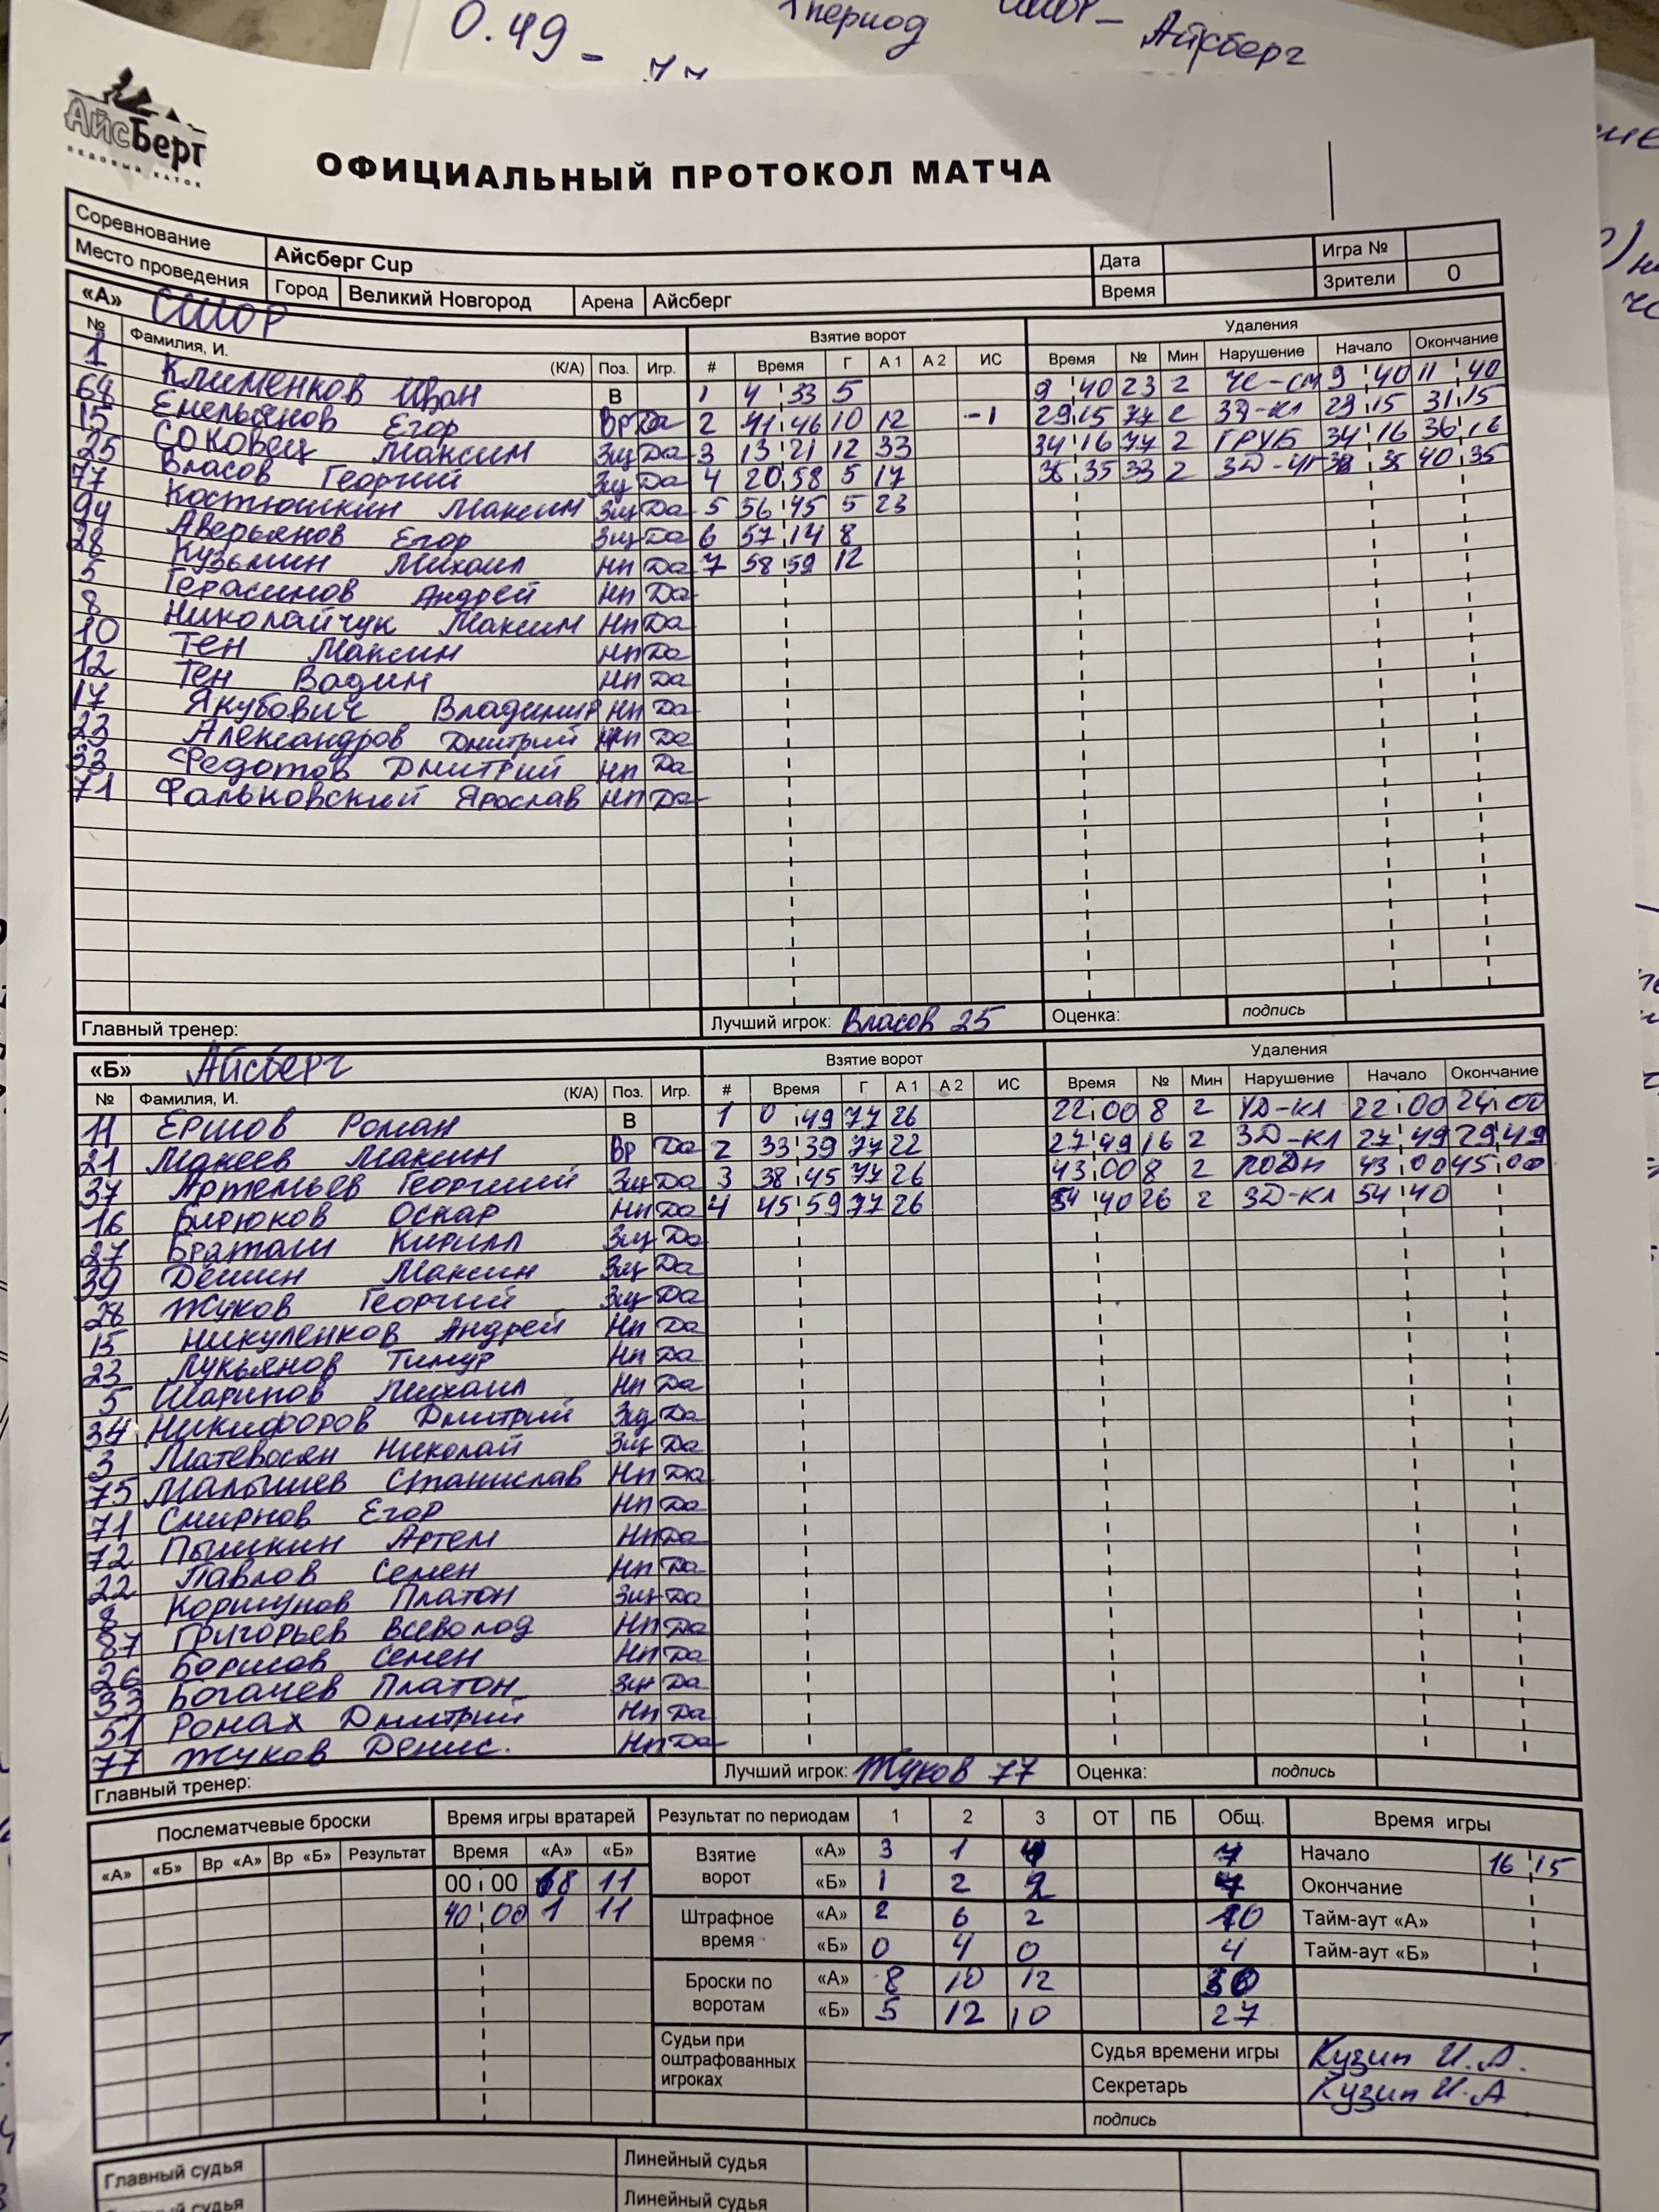 0.49 - 77
1 период
Айсберг
АйсБерг
ЛЕДОВЫЙ КАТОК
ОФИЦИАЛЬНЫЙ ПРОТОКОЛ МАТЧА
Соревнование Айсберг Cup Дата Игра №
Место проведения Город Великий Новгород Арена Айсберг Время Зрители 0
«А» СШОР Взятие ворот Удаления
№ Фамилия, И. (К/А) Поз. Игр. # Время Г А 1 А 2 ИС Время № Мин Нарушение Начало Окончание
1 Клименков Иван В 1 4 33 5 9 40 23 2 9 40 11 40
68 Емельянов Егор Вр Да 2 11 46 10 12 -1 29 15 77 2 ЗД-КЛ 29 15 31 15
15 Соковец Максим Зщ Да 3 13 21 12 33 34 16 77 2 ГРУБ 34 16 36 16
25 Власов Георгий Зщ Да 4 20 58 5 17 35 33 2 35 40 35
77 Костюшкин Максим Зщ Да 5 56 45 5 23
94 Аверьянов Егор Зщ Да 6 57 14 8
28 Кузьмин Михаил Нп Да 7 58 59 12
5 Герасимов Андрей Нп Да
8 Николайчук Максим Нп Да
10 Тен Максим Нп Да
12 Тен Вадим Нп Да
17 Якубович Владимир Нп Да
23 Александров Дмитрий Нп Да
33 Федотов Дмитрий Нп Да
71 Фальковский Ярослав Нп Да
Главный тренер: Лучший игрок: Власов 25 Оценка: подпись
«Б» Айсберг Взятие ворот Удаления
№ Фамилия, И. (К/А) Поз. Игр. # Время Г А 1 А 2 ИС Время № Мин Нарушение Начало Окончание
11 Ершов Роман В 1 0 49 77 26 22 00 8 2 УД-КЛ 22 00 24 00
21 Макеев Максим Вр Да 2 33 39 77 22 27 49 16 2 ЗД-КЛ 27 49 29 49
37 Артемьев Георгий Зщ Да 3 38 45 77 26 43 00 8 2 ПОДН 43 00 45 00
16 Бирюков Оскар Нп Да 4 45 59 77 26 54 40 26 2 ЗД-КЛ 54 40
27 Браташ Кирилл Зщ Да
39 Дешин Максим Зщ Да
28 Жуков Георгий Зщ Да
15 Никуленков Андрей Нп Да
23 Лукьянов Тимур Нп Да
5 Шарипов Михаил Нп Да
34 Никифоров Дмитрий Зщ Да
3 Матевосян Николай Зщ Да
75 Малышев Станислав Нп Да
71 Смирнов Егор Нп Да
72 Пышкин Артем Нп Да
22 Павлов Семен Нп Да
8 Коршунов Платон Зщ Да
87 Григорьев Всеволод Нп Да
26 Борисов Семен Нп Да
33 Богачев Платон Зщ Да
51 Ромах Дмитрий Нп Да
77 Жуков Денис. Нп Да
Главный тренер: Лучший игрок: Жуков 77 Оценка: подпись
Послематчевые броски Время игры вратарей Результат по периодам 1 2 3 ОТ ПБ Общ. Время игры
«А» «Б» Вр «А» Вр «Б» Результат Время «А» «Б» Взятие ворот «А» 3 1 7 Начало 16 15
00 00 68 11 «Б» 1 2 Окончание
40 00 1 11 Штрафное время «А» 2 6 2 10 Тайм-аут «А»
«Б» 0 4 0 4 Тайм-аут «Б»
Броски по воротам «А» 8 10 12 30
«Б» 5 12 10 27
Судьи при оштрафованных игроках Судья времени игры Кузин И.А.
Секретарь Кузин И.А
подпись
Главный судья Линейный судья
Главный судья Линейный судья